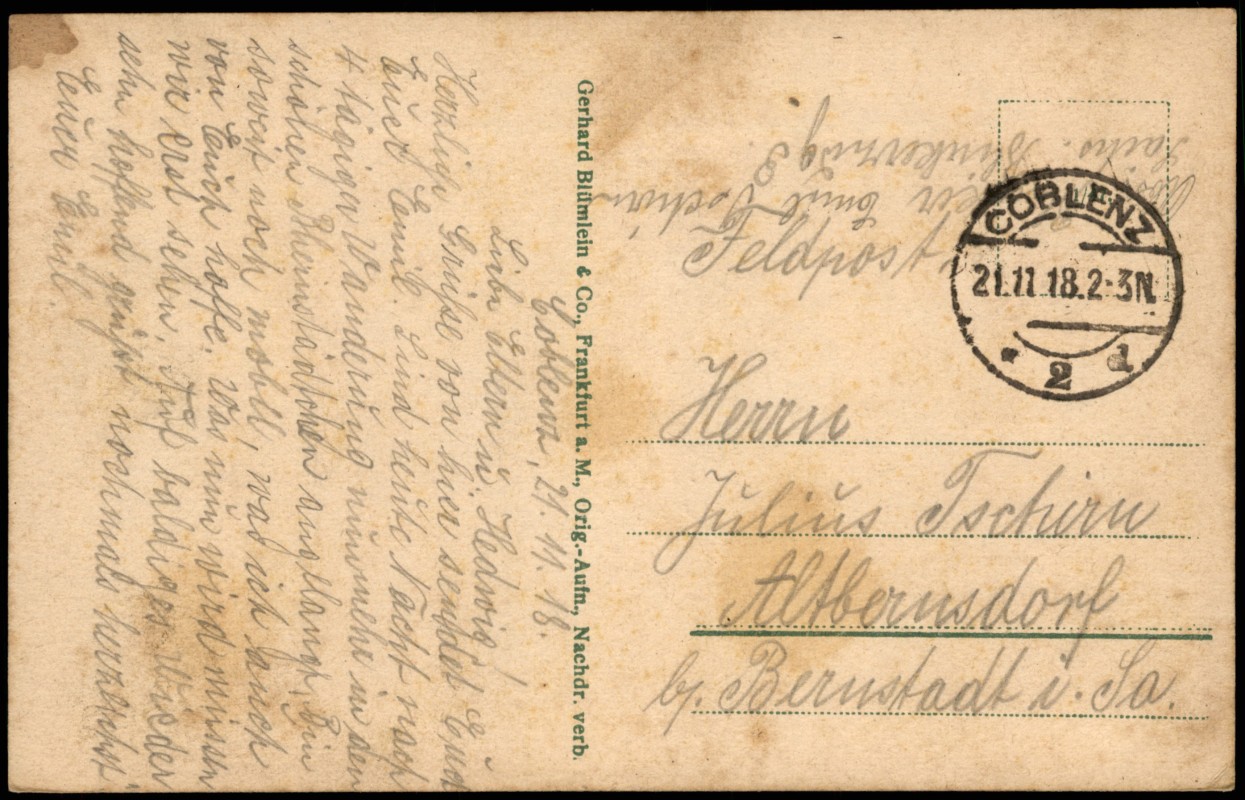 Coblenz, 21.11.18.
Liebe Eltern u. Hedwig!
Herzliche Grüße von hier sendet Euch
Euer Emil. Sind heute Nacht nach
4 tägiger Wanderung nunmehr in dem
schönen Rheinstädtchen anglangt. Bin
soweit noch mobil, was ich auch
von Euch hoffe. Was nun wird müssen
wir erst sehen. Auf baldiges Wieder
sehn hoffend grüßt nochmals herzlichst
Euer Emil.
Gerhard Blümlein & Co., Frankfurt a. M., Orig.-Aufn., Nachdr. verb.
Emil Tschirn
Feldpost
COBLENZ
21.11.18.2-3N
* 2 d
Herrn
Julius Tschirn
Altbernsdorf
b/. Bernstadt i. Sa.